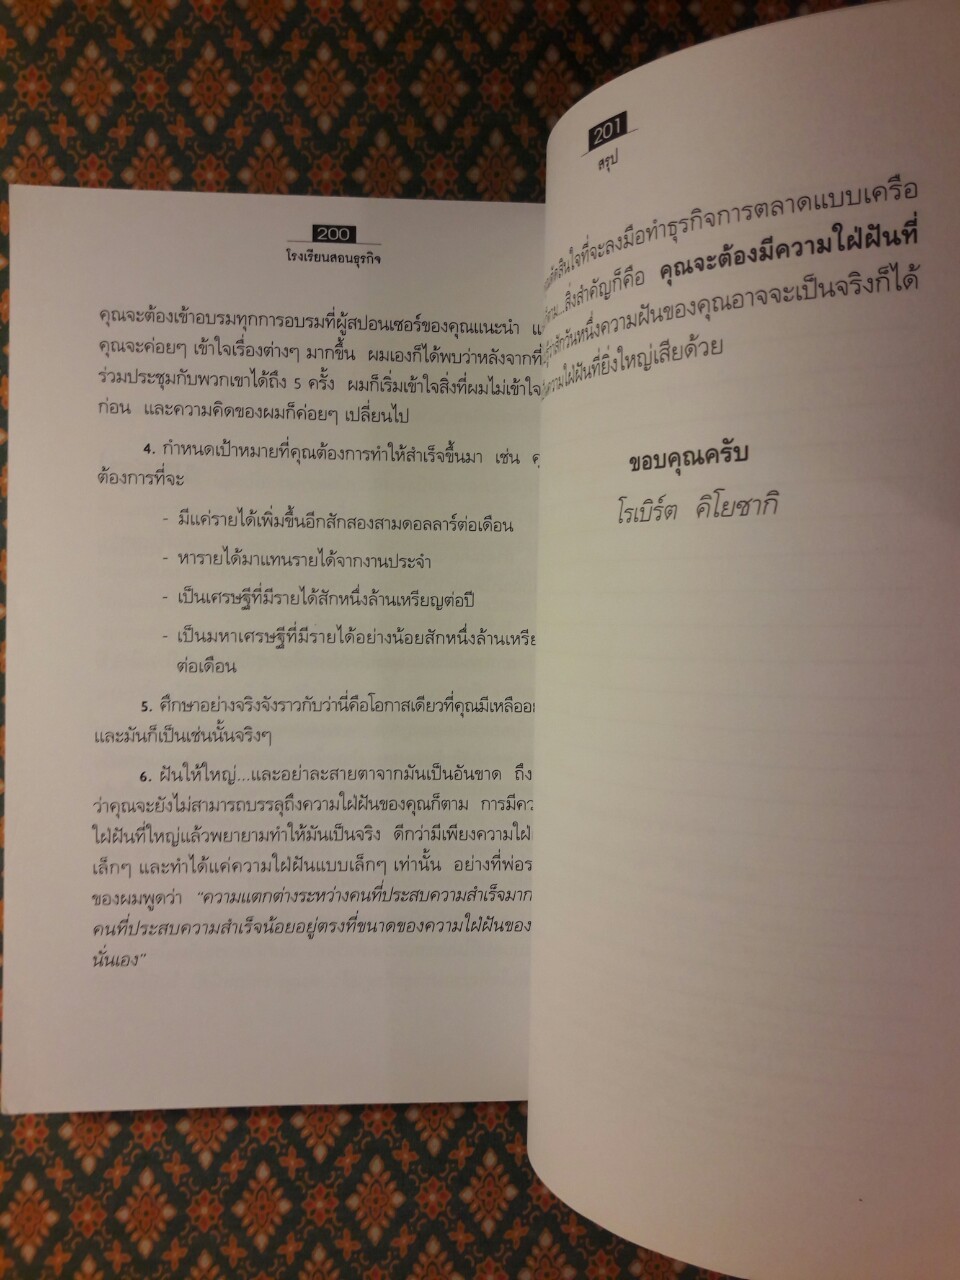 200
โรงเรียนสอนธุรกิจ
คุณจะต้องเข้าอบรมทุกการอบรมที่ผู้สปอนเซอร์ของคุณแนะนำ
คุณจะค่อยๆ เข้าใจเรื่องต่างๆ มากขึ้น ผมเองก็ได้พบว่าหลังจากที่
ร่วมประชุมกับพวกเขาได้ถึง 5 ครั้ง ผมก็เริ่มเข้าใจสิ่งที่ผมไม่เข้าใจ
ก่อน และความคิดของผมก็ค่อยๆ เปลี่ยนไป
4. กำหนดเป้าหมายที่คุณต้องการทำให้สำเร็จขึ้นมา เช่น
ต้องการที่จะ
- มีแค่รายได้เพิ่มขึ้นอีกสักสองสามดอลลาร์ต่อเดือน
- หารายได้มาแทนรายได้จากงานประจำ
- เป็นเศรษฐีที่มีรายได้สักหนึ่งล้านเหรียญต่อปี
- เป็นมหาเศรษฐีที่มีรายได้อย่างน้อยสักหนึ่งล้านเหรีย
ต่อเดือน
5. ศึกษาอย่างจริงจังราวกับว่านี่คือโอกาสเดียวที่คุณมีเหลือ
และมันก็เป็นเช่นนั้นจริงๆ
6. ฝันให้ใหญ่...และอย่าละสายตาจากมันเป็นอันขาด ถึง
ว่าคุณจะยังไม่สามารถบรรลุถึงความใฝ่ฝันของคุณก็ตาม การมีคว
ใฝ่ฝันที่ใหญ่แล้วพยายามทำให้มันเป็นจริง ดีกว่ามีเพียงความใฝ่
เล็กๆ และทำได้แค่ความใฝ่ฝันแบบเล็กๆ เท่านั้น อย่างที่พ่อร
ของผมพูดว่า "ความแตกต่างระหว่างคนที่ประสบความสำเร็จมาก
คนที่ประสบความสำเร็จน้อยอยู่ตรงที่ขนาดของความใฝ่ฝันของ
นั่นเอง"
201
สรุป
ตัดสินใจที่จะลงมือทำธุรกิจการตลาดแบบเครือ
ตาม...สิ่งสำคัญก็คือ คุณจะต้องมีความใฝ่ฝันที่
สักวันหนึ่งความฝันของคุณอาจจะเป็นจริงก็ได้
ความใฝ่ฝันที่ยิ่งใหญ่เสียด้วย
ขอบคุณครับ
โรเบิร์ต คิโยซากิ